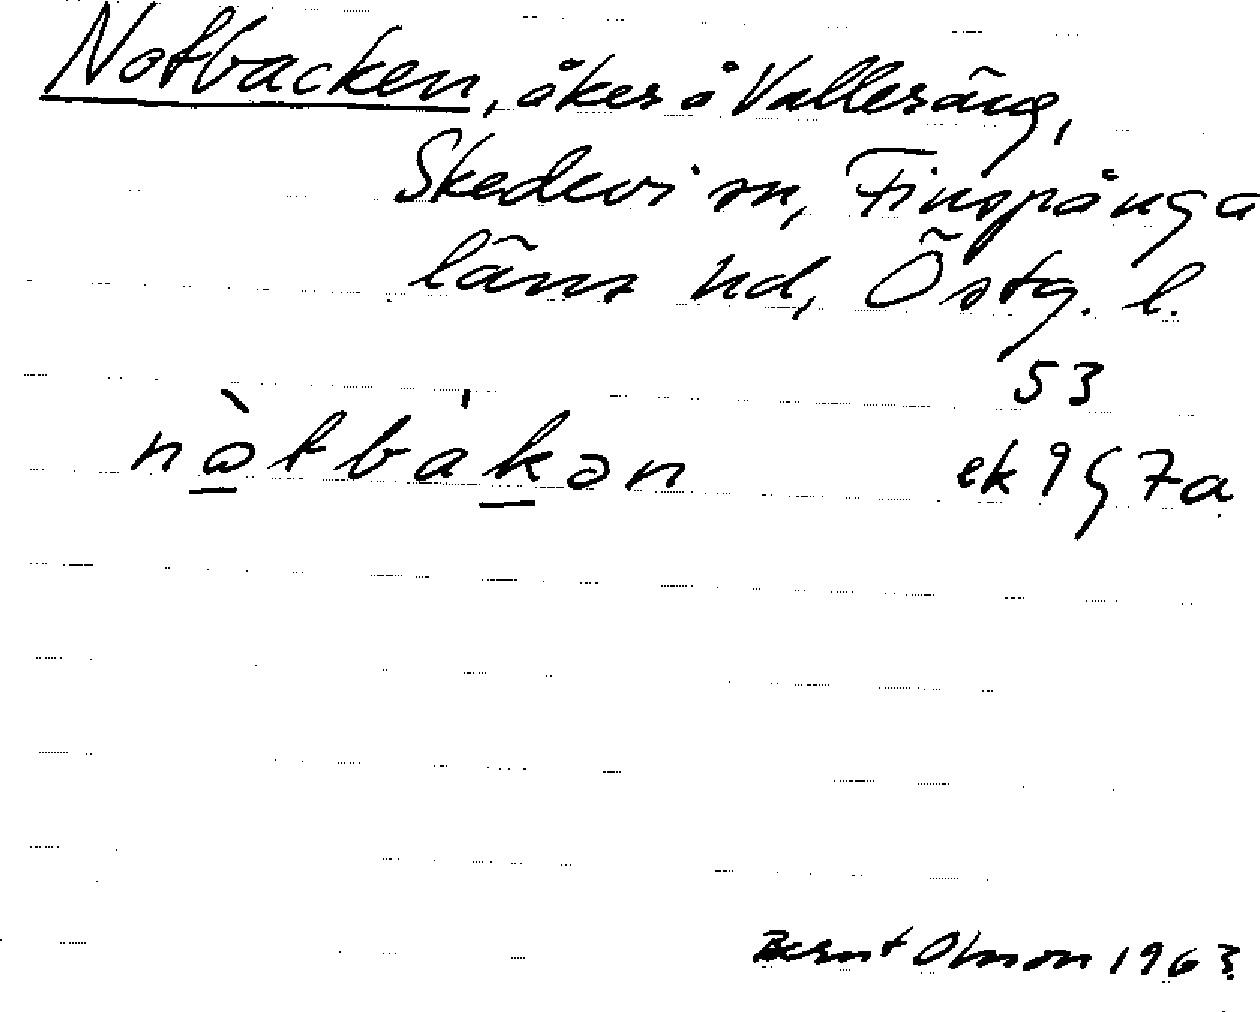 Notbacken, åker å Vallersäng,
Skedevi sn, Finspånga
läns hd, Östg. l.
53
nòtbákən ek 9G7a
Bernt Olsson 1963